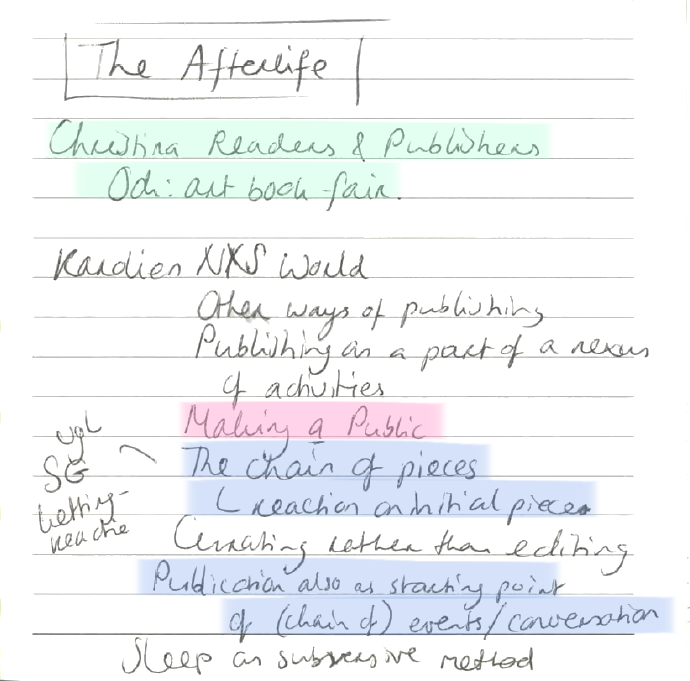 The Afterlife
Christina Readers & Publishers
Odi: art book fair.
Kardien NXS World
Other ways of publishing
Publishing as a part of a nexus
of activities
Making a Public
vgl
SG
The chain of pieces
L reaction on initial pieces
Curating rather than editing
Publication also as starting point
of (chain of) events/conversation
Sleep as subversive method